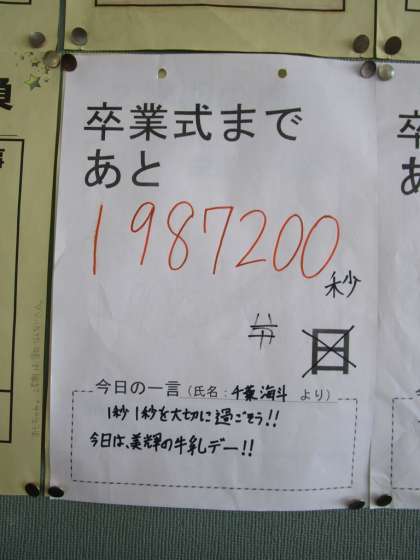 卒業式まで
あと
1987200
秒
日
今日の一言（氏名：千葉海斗 より）
1秒1秒を大切に過ごそう!!
今日は、美輝の牛乳デー!!